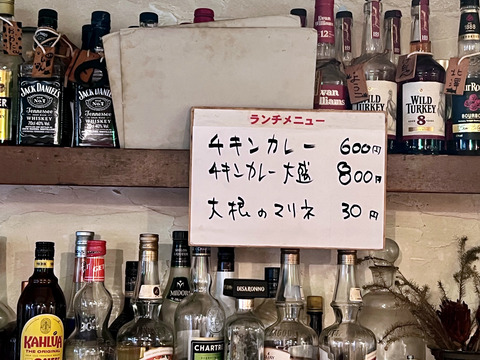 JACK DANIEL'S
Old No.7
Tennessee
WHISKEY
JACK DANIEL'S
Old No.7
Tennessee
WHISKEY
Evan Williams
12
Evan Williams
WILD
TURKEY
WILD
TURKEY
8
Four Roses
BOURBON
ランチメニュー
チキンカレー 600円
チキンカレー大盛 800円
大根のマリネ 30円
KAHLÚA
THE ORIGINAL
MIDORI
DISARONNO
CHARTR